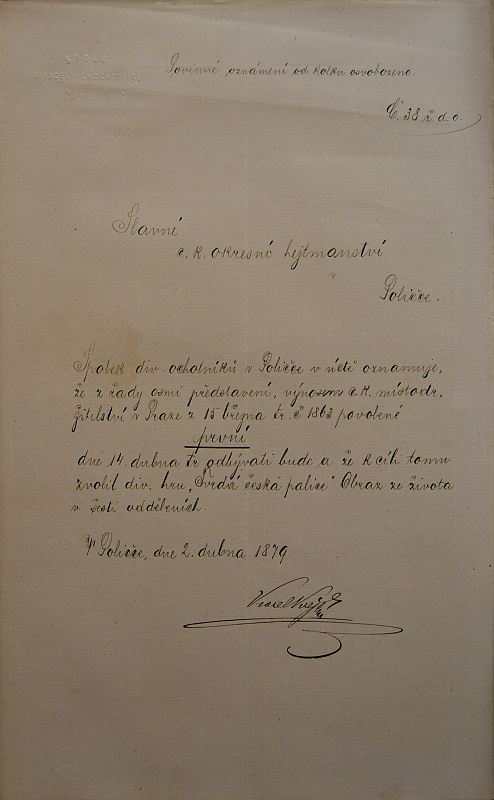 SPOLEK
Povinné oznámení od kolku osvobozeno.
Č. 38 ř. d. o.
Slavné
c. k. okresní hejtmanství
v
Poličce.
Spolek div. ochotníků v Poličce v úctě oznamuje,
že z řady osmi představení, výnosem c. k. místodr-
žitelství v Praze z 15 března tr. č 1863 povolené
první
dne 14. dubna tr odbývati bude a že k cíli tomu
zvolil div. hru „Tvrdá česká palice" Obraz ze života
v šesti odděleních.
V Poličce, dne 2. dubna 1879
Karel